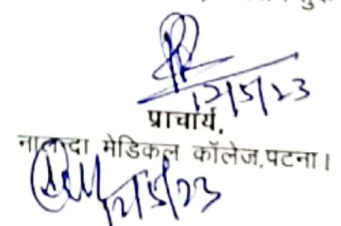 12/5/23
प्राचार्य,
नालन्दा मेडिकल कॉलेज,पटना।
12/5/23